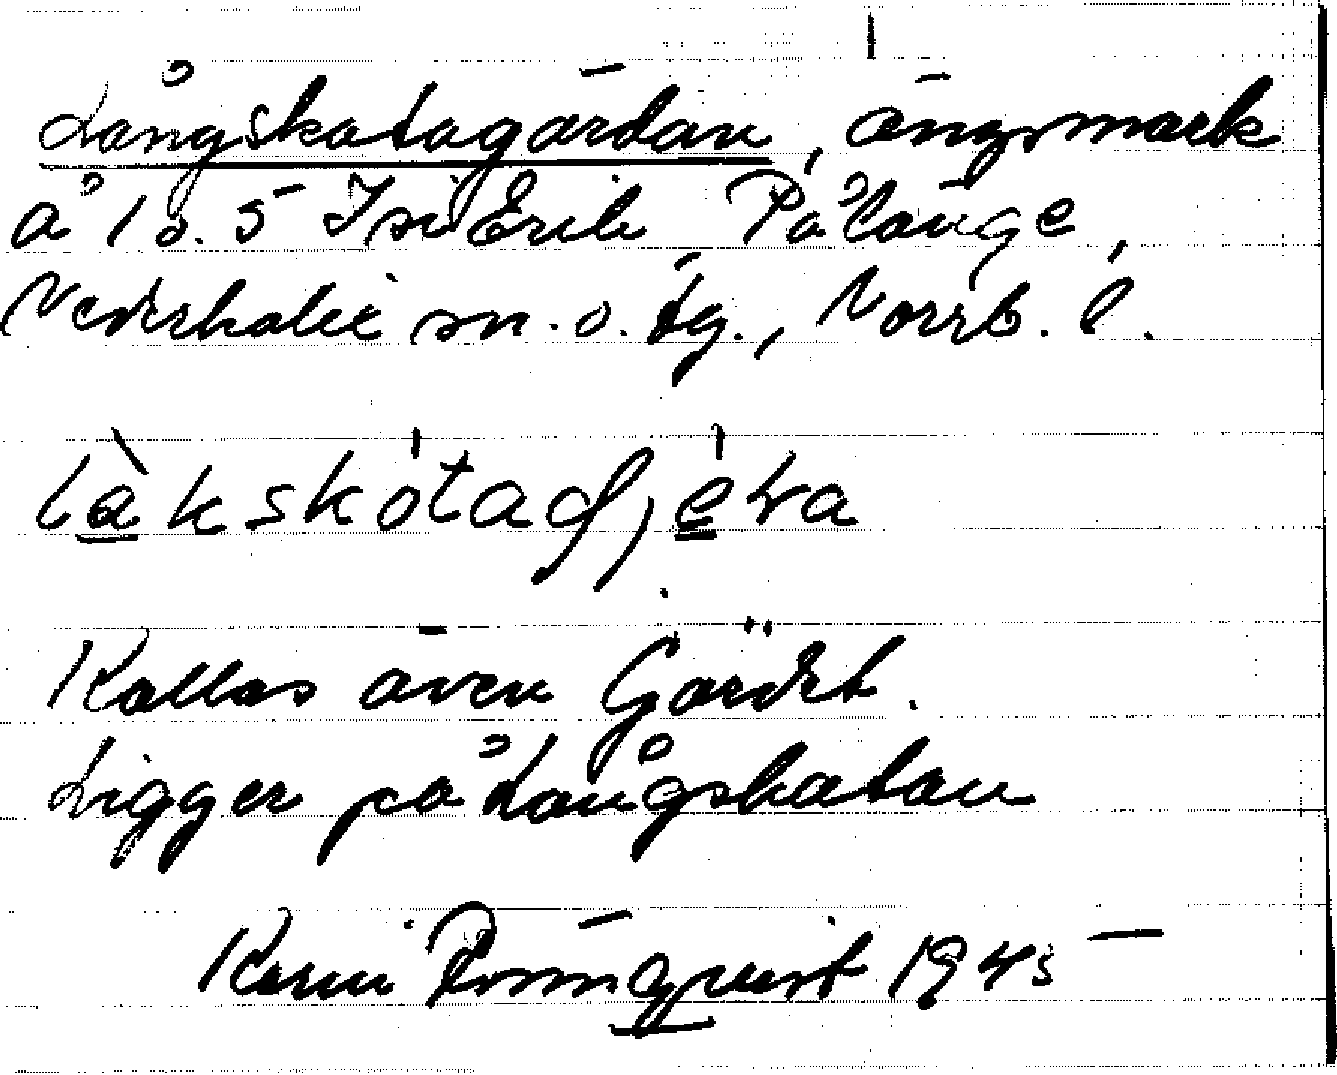 Långskatagärdan, ängsmark
å 1 o. 5 Isi Erik Pålänge,
Nederkalix sn. o. tg., Norrb. l.
làkskòtadjèra
Kallas även Gärdet.
Ligger på Långskatan
Karin Rönnqvist 1945